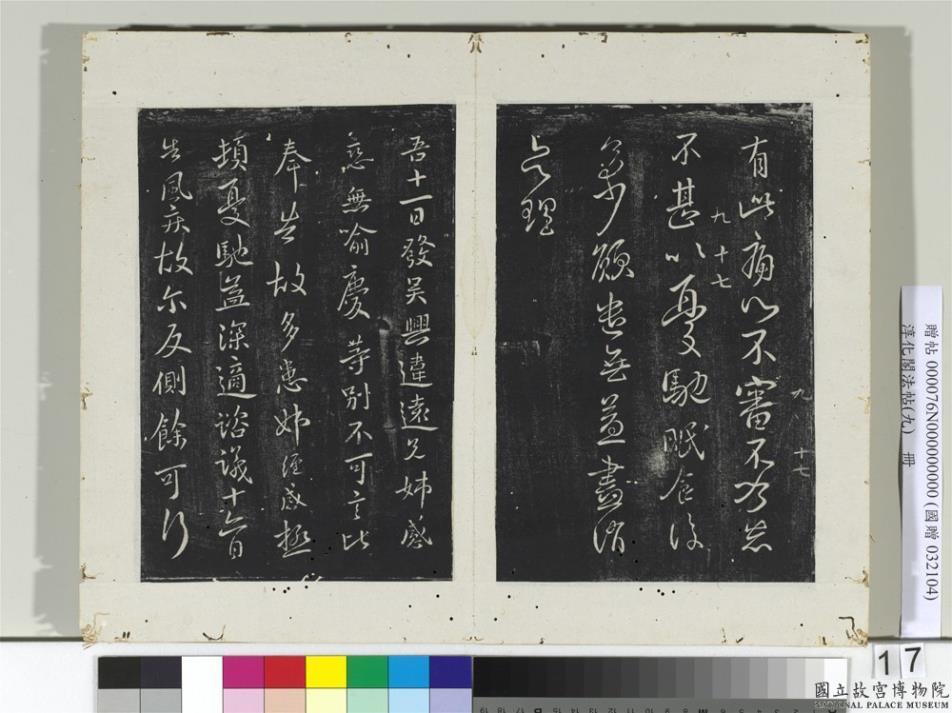 有此痾以不審不乃
不甚以憂馳眠食復
九 十七
九 十七
多少顧告無益盡消
息理
吾十一日發吳興違遠兄姊感
戀無喻慶等別不可言比
奉告故多患姊經感極
頓憂馳益深適諮議十六日
告風疾故尔反側餘可行
贈帖 000076N000000000 (國贈 032104)
淳化閣法帖(九) 冊
17
國立故宮博物院
NATIONAL PALACE MUSEUM